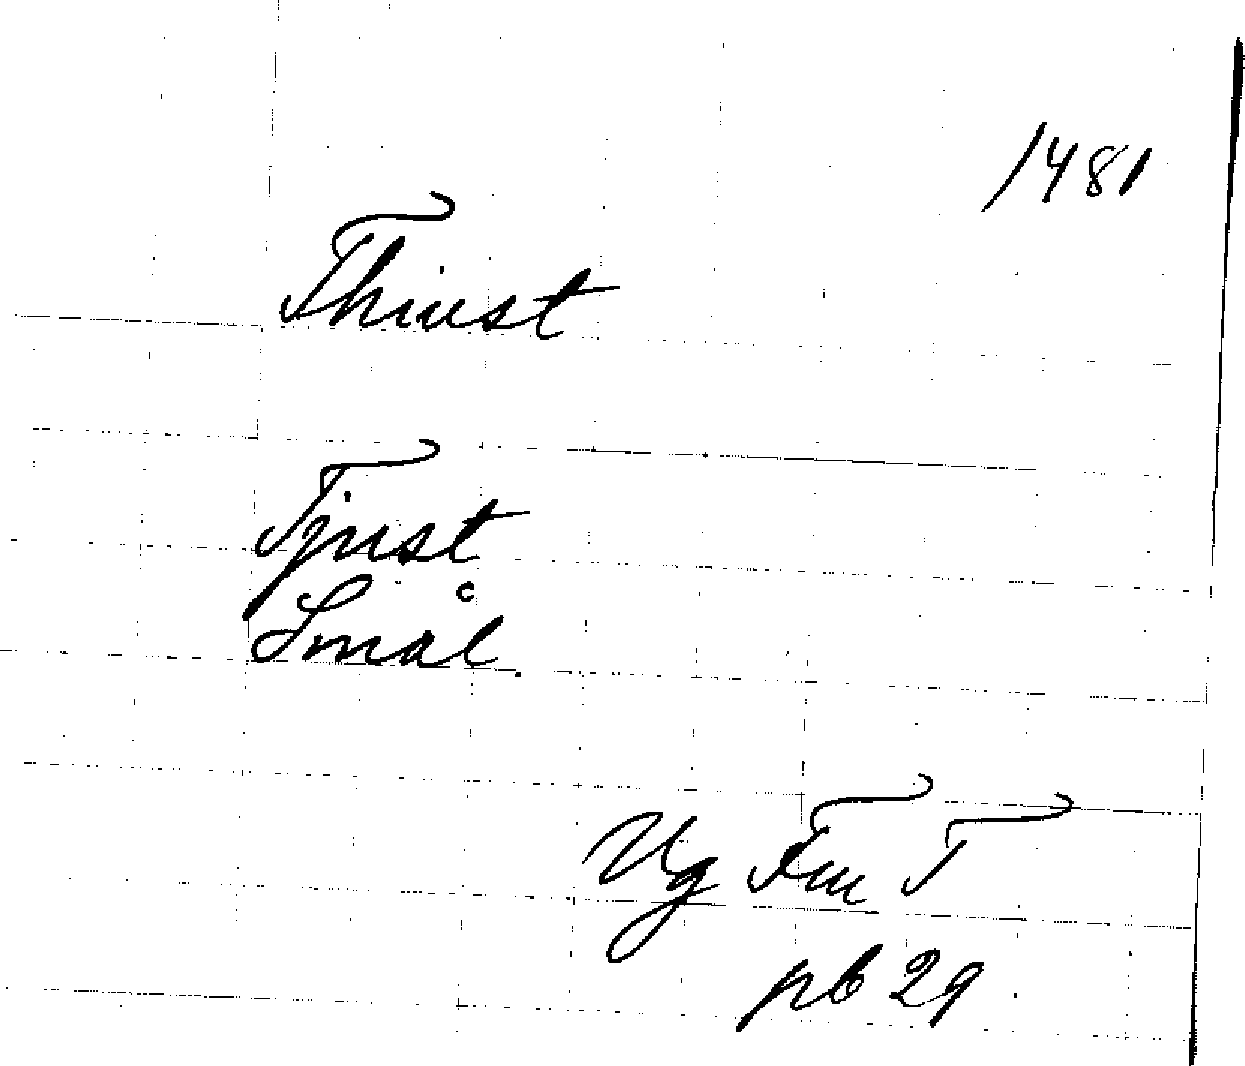 1481
Thiust
Tjust
Smål.
Vg Fm T
pb 29.